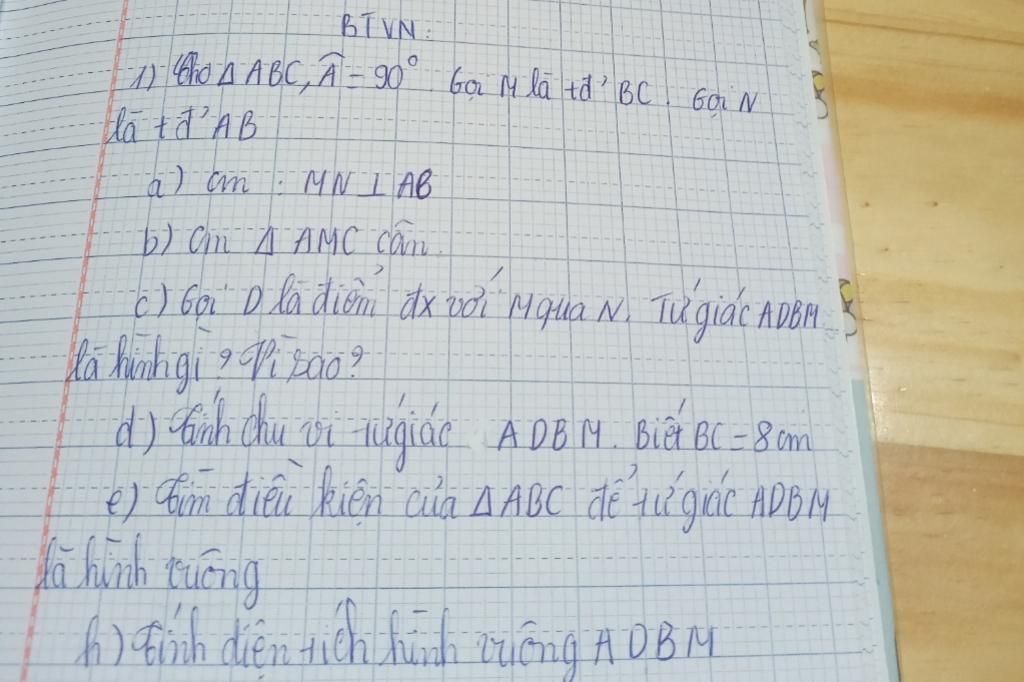 BTVN:
1) Cho Δ ABC, Â = 90° Gọi M là tđ' BC. Gọi N
là tđ' AB
a) Cm : MN ⊥ AB
b) Cm Δ AMC cân.
c) Gọi D là điểm đx với M qua N. Tứ giác ADBM
là hình gì? Vì sao?
d) Tính chu vi tứ giác ADBM. Biết BC = 8cm
e) Tìm điều kiện của Δ ABC để tứ giác ADBM
là hình vuông
h) Tính diện tích hình vuông ADBM